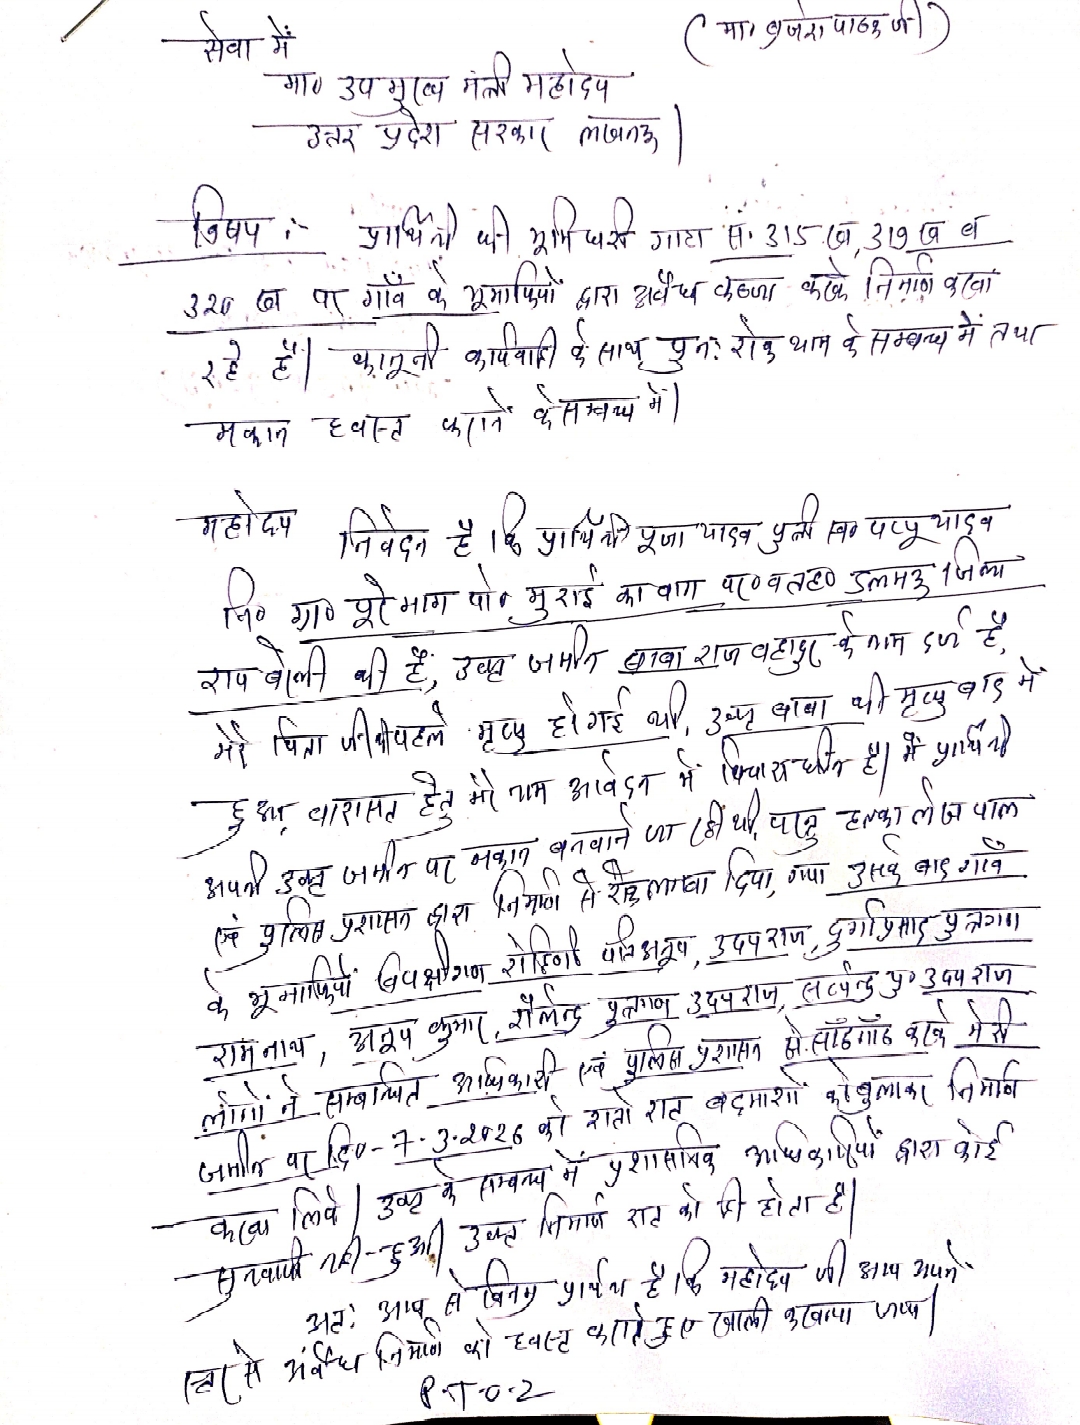 (मा० ब्रजेश पाठक जी)
सेवा में
मा० उप मुख्य मंत्री महोदय
उत्तर प्रदेश सरकार लखनऊ|
विषय :- प्रार्थिनी की भूमिधरी गाटा सं. 315 ख, 319 ख व
320 ख पर गाँव के भूमाफियों द्वारा अवैध कब्जा करके निर्माण करवा
रहे हैं| कानूनी कार्यवाही के साथ पुन: रोक थाम के सम्बन्ध में तथा
मकान ध्वस्त कराने के सम्बन्ध में|
महोदय निवेदन है कि प्रार्थिनी पूजा यादव पुत्री स्व० पप्पू यादव
नि० ग्रा० पूरे भाग पो० मुराई का बाग प० व तह० डलमऊ जिला
राय बरेली की हैं, उक्त जमीन बाबा राज बहादुर के नाम दर्ज है,
मेरे पिता जी की पहले मृत्यु हो गई थी, उक्त बाबा की मृत्यु बाद में
हुआ, वारासत हेतु मेरे नाम आवेदन में विचाराधीन है| मैं प्रार्थिनी
अपनी उक्त जमीन पर मकान बनवाने जा रही थी, परन्तु हल्का लेखपाल
एवं पुलिस प्रशासन द्वारा निर्माण से रोक लगवा दिया, गया उसके बाद गाँव
के भूमाफियों विपक्षीगण रोहिणी पत्नि अनूप, उदयराज, दुर्गाप्रसाद पुत्रगण
रामनाथ, अनूप कुमार, शैलेन्द्र पुत्रगण उदयराज, सत्येन्द्र पु० उदयराज
लोगों ने सम्बन्धित अधिकारी एवं पुलिस प्रशासन से साँठगाँठ करके मेरी
जमीन पर दि०-7.3.2026 को रातो रात बदमाशों को बुलाकर निर्माण
करवा लिये| उक्त के सम्बन्ध में प्रशासनिक अधिकारियों द्वारा कोई
सुनवायी नहीं-हुआ| उक्त निर्माण रात को ही होता है|
अत: आप से विनम्र प्रार्थना है कि महोदय जी आप अपने
स्तर से अवैध निर्माण को ध्वस्त कराते हुए खाली करवाया जाय|
P.T.O.2